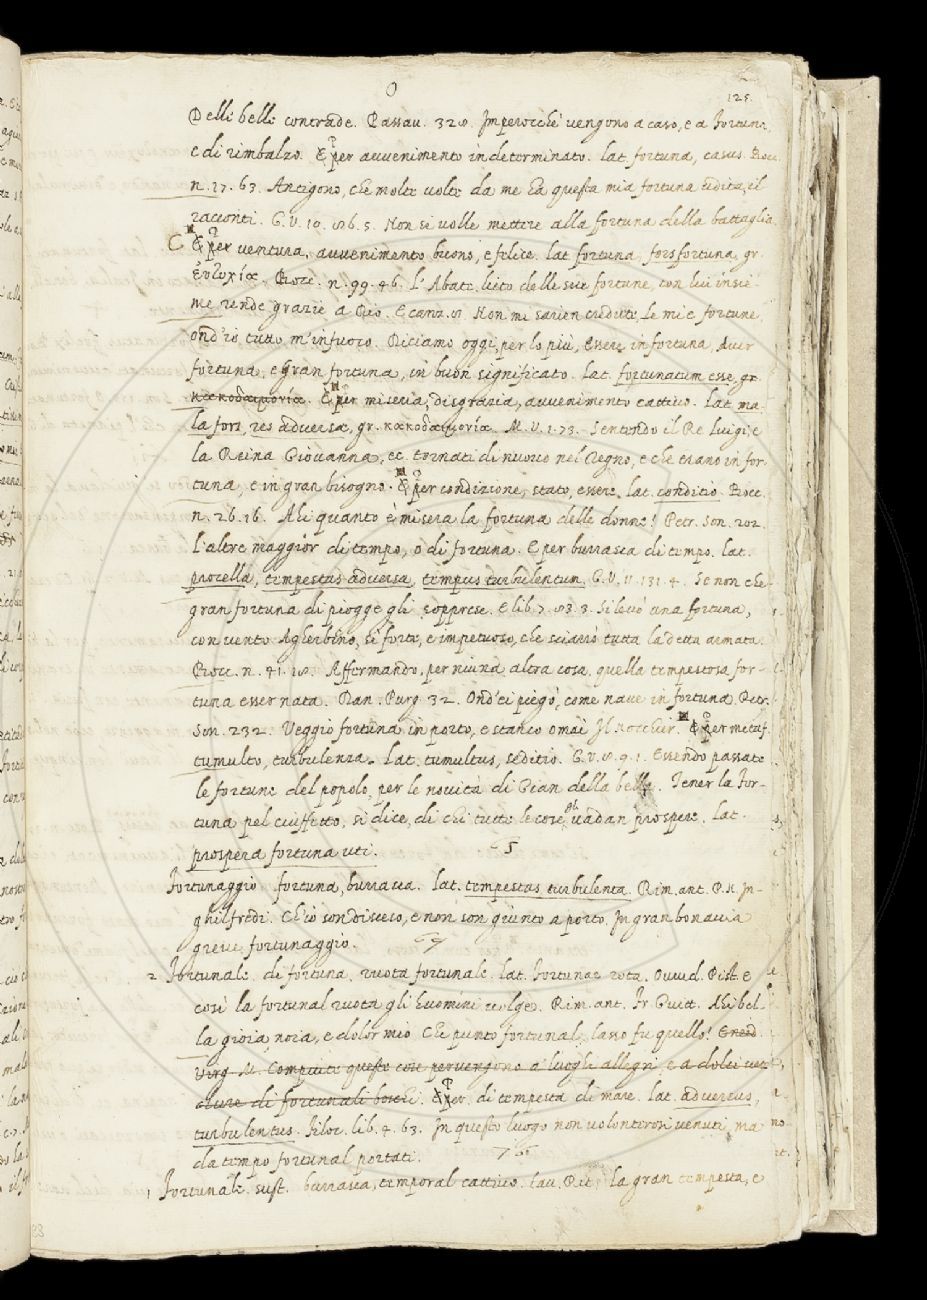 O
125.
Delli belli contrade. Passau. 328. Imperocchè vengono a caso, e a fortuna,
e di rimbalzo. E per avvenimento indeterminato. lat. fortuna, casus. Bocc.
n. 17. 63. Antigono, che molte volte da me ha questa mia fortuna udita, il
racconti. G.V. 10. 86. 5. Non si volle mettere alla fortuna della battaglia.
C E per ventura, avvenimento buono, e felice. lat. fortuna, fors fortuna, gr.
ἐυτυχία. Bocc. n. 99. 46. L'Abate, lieto delle sue fortune, con lui insie-
me rende grazie a Dio. E canz. 8. Non mi sarien credute le mie fortune,
ond'io tutto m'infuoco. Diciamo oggi, per lo più, Essere in fortuna, Aver
fortuna, e gran fortuna, in buon significato. lat. fortunatum esse, gr.
κακοδαιμονία. E per miseria, disgrazia, avvenimento cattivo. lat. ma-
la fors, res adversa, gr. κακοδαιμονία. M.V. 1. 73. Sentendo il Re Luigi, e
la Reina Giovanna, ec. tornati di nuovo nel Regno, e che erano in for-
tuna, e in gran bisogno. E per condizione, stato, essere. lat. conditio. Bocc.
n. 26. 16. Ahi quanto è misera la fortuna delle donne! Petr. Son. 202.
L'altre maggior di tempo, o di fortuna. E per burrasca di tempo. lat.
procella, tempestas adversa, tempus turbulentum. G.V. 11. 131. 4. Se non che
gran fortuna di piogge gli soppresse. E lib. 7. 83. 3. Si levò una fortuna,
con vento Agherbino, sì forte, e impetuoso, che sciarrò tutta la detta armata.
Bocc. n. 41. 18. Affermando, per niuna altra cosa, quella tempestosa for-
tuna esser nata. Dan. Purg. 32. Ond'ei piegò, come nave in fortuna. Petr.
Son. 232. Veggio fortuna in porto, e stanco omai Il nocchier. E per metaf.
tumulto, turbulenza. lat. tumultus, seditio. G.V. 8. 9. 1. Essendo passate
le fortune del popolo, per le novità di Gian della bella. Tener la for-
tuna pel ciuffetto, si dice, di chi tutte le cose gli vadan prospere. lat.
prospera fortuna uti.
Fortunaggio fortuna, burrasca. lat. tempestas turbulenta. Rim. ant. P. N. In-
ghilfredi. Ch'io son disceso, e non son giunto a porto. In gran bonaccia
greve fortunaggio.
2 Fortunale. di fortuna. ruota fortunale. lat. fortunae rota. Ovvid. Pist. E
così la fortunal ruota gli huomini volge. Rim. ant. Fr. Guitt. Ahi bel-
la gioia noia, e dolor mio Che punto fortunal, lasso fu quello!
Virg. M. Compiute queste cose pervengono a' luoghi allegri, e a dolci ver-
dure di fortunali boschi. E per. di tempesta di mare. lat. adversus,
turbulentus. Filoc. lib. 4. 63. In questo luogo non volonterosi venuti, ma
da tempo fortunal portati.
1 Fortunale. sust. burrasca, temporal cattivo. Tav. Rit. la gran tempesta, e